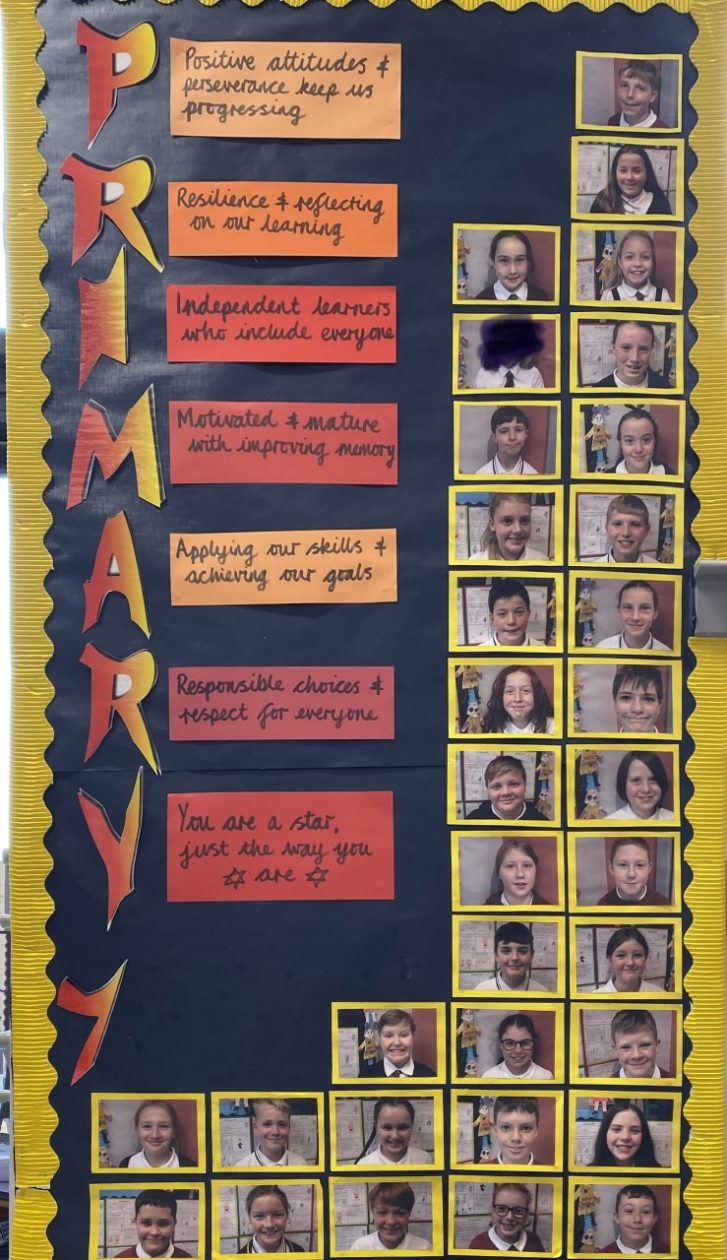 PRIMARY 7
Positive attitudes &
perseverance keep us
progressing
Resilience & reflecting
on our learning
Independent learners
who include everyone
Motivated & mature
with improving memory
Applying our skills &
achieving our goals
Responsible choices &
respect for everyone
You are a star,
just the way you
are